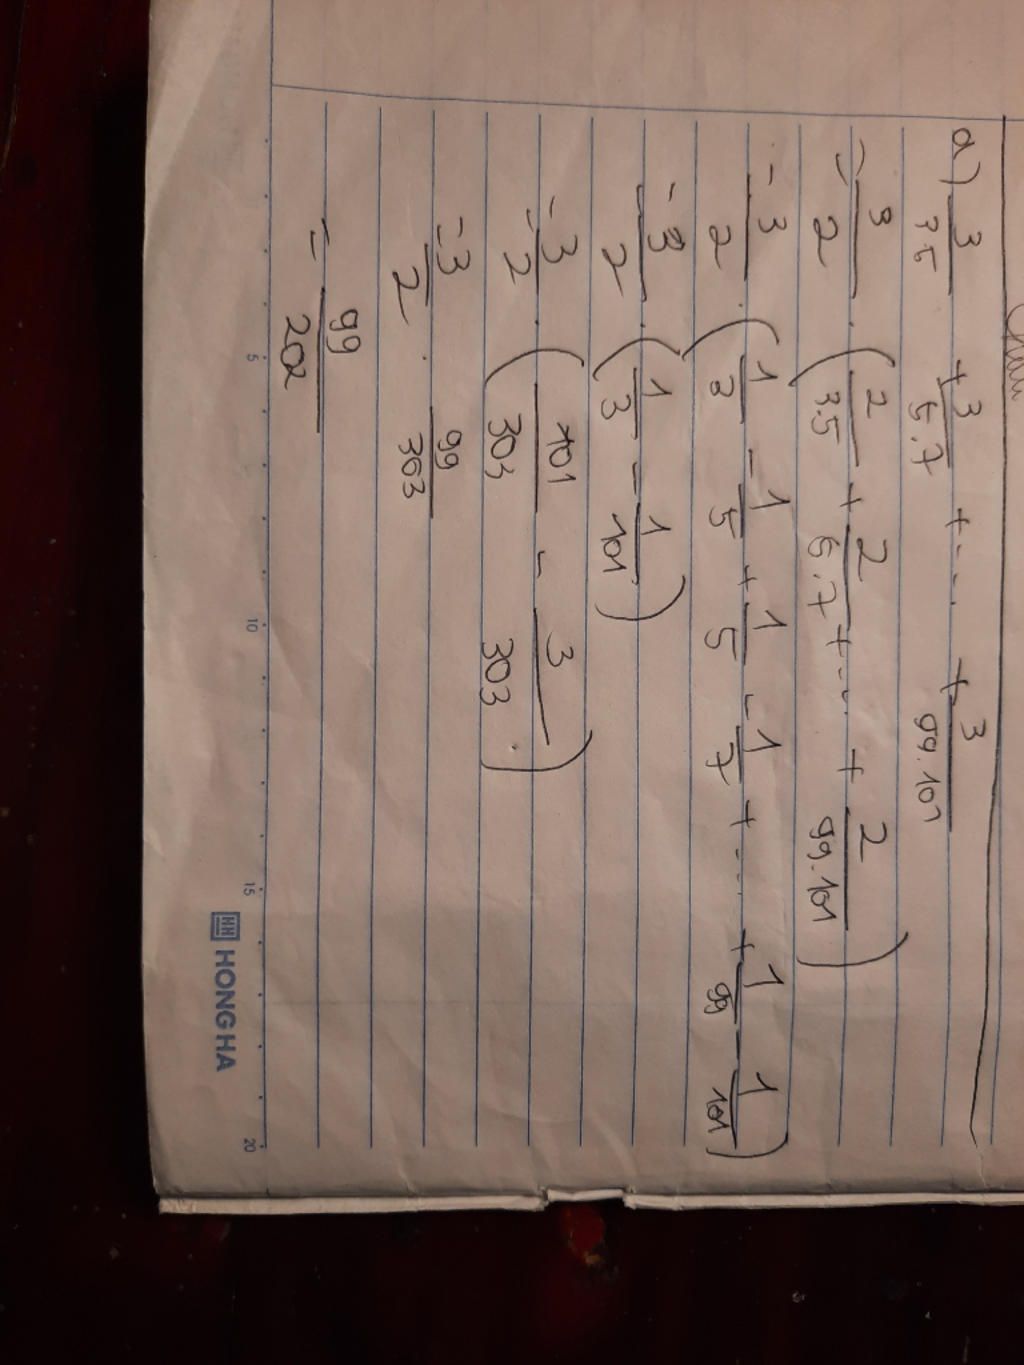 a) 3/3.5 + 3/5.7 + .... + 3/99.101
= 3/2 . ( 2/3.5 + 2/5.7 + .... + 2/99.101 )
= 3/2 . ( 1/3 - 1/5 + 1/5 - 1/7 + .... + 1/99 - 1/101 )
= 3/2 . ( 1/3 - 1/101 )
= 3/2 . ( 101/303 - 3/303 )
= 3/2 . 99/303
= 99/202
5 10 15 20
HH HONG HA